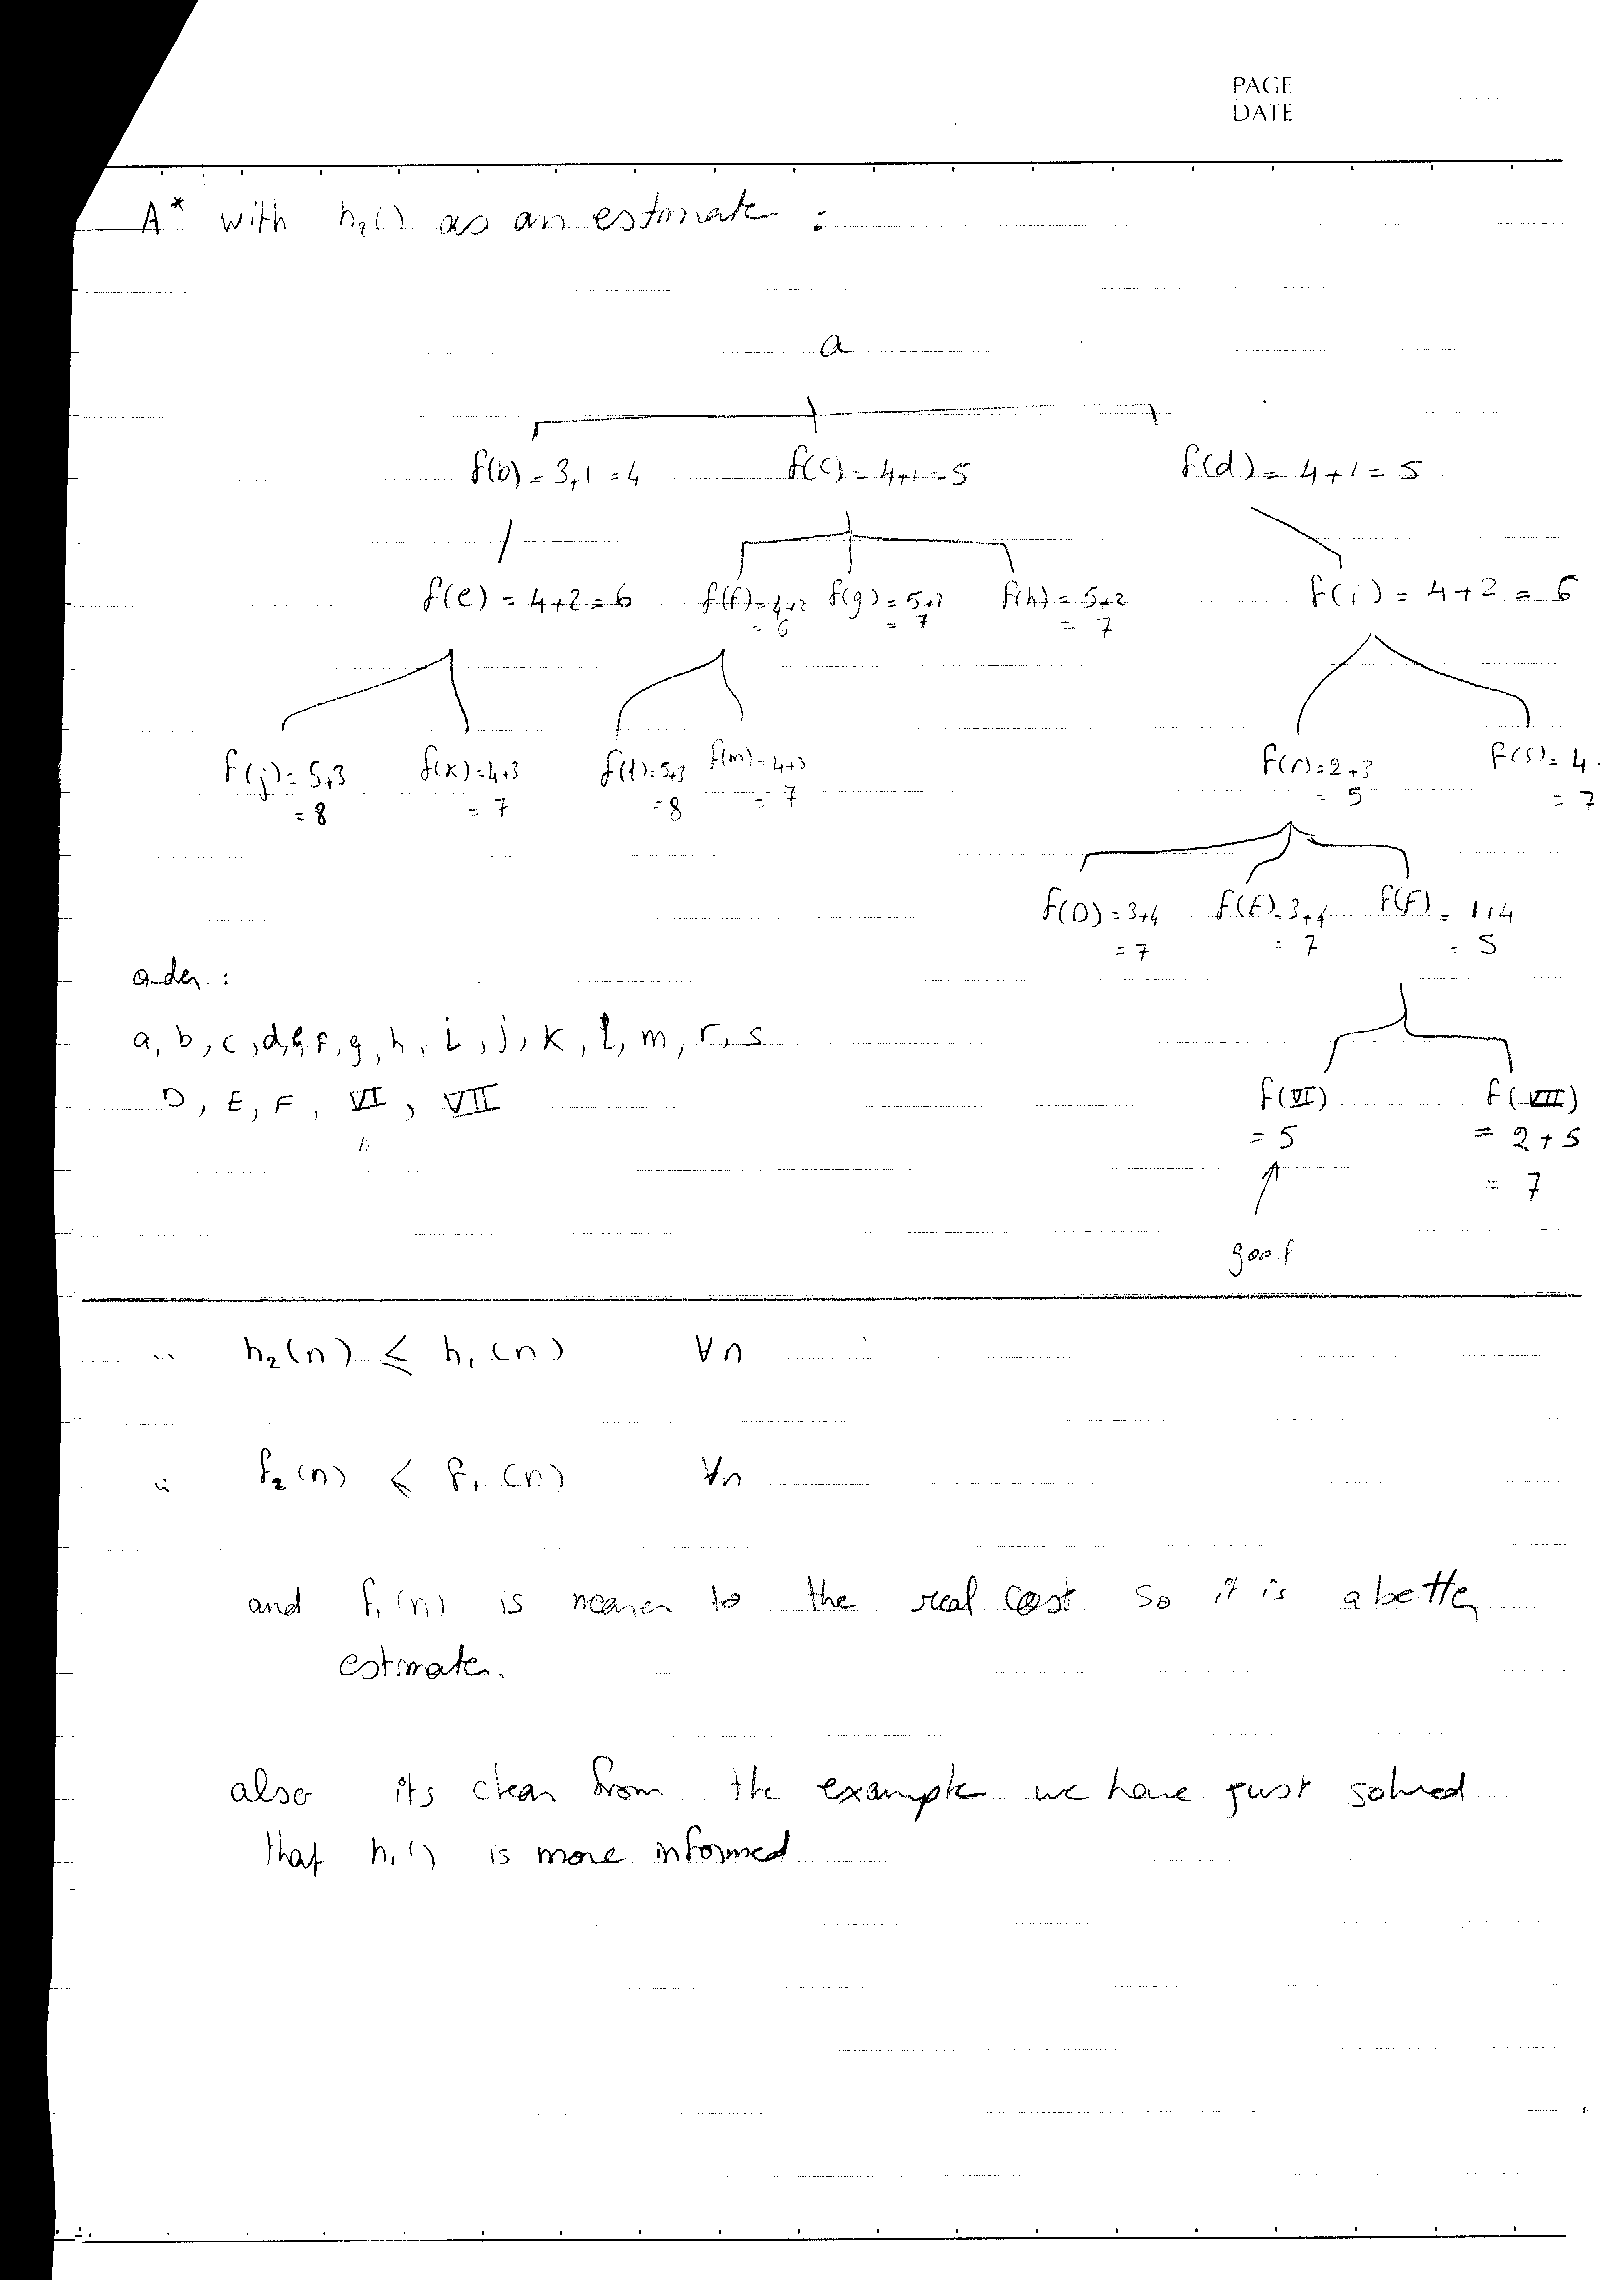 PAGE
DATE
A* with h₂() as an estimate :
a
f(b) = 3+1 = 4 f(c) = 4+1 = 5 f(d) = 4+1 = 5
f(e) = 4+2 = 6 f(f) = 4+2 = 6 f(g) = 5+2 = 7 f(h) = 5+2 = 7 f(i) = 4+2 = 6
f(j) = 5+3 = 8 f(k) = 4+3 = 7 f(l) = 5+3 = 8 f(m) = 4+3 = 7 f(r) = 2+3 = 5 f(s) = 4 = 7
f(D) = 3+4 = 7 f(E) = 3+4 = 7 f(F) = 1+4 = 5
order :
a, b, c, d, e, f, g, h, i, j, k, l, m, r, s
D, E, F, VI, VII
f(VI) = 5 f(VII) = 2+5 = 7
goal
∵ h₂(n) ≤ h₁(n) ∀n
∴ f₂(n) ≤ f₁(n) ∀n
and f₁(n) is nearer to the real cost so it is a better
estimate.
also its clear from the example we have just solved
that h₁() is more informed